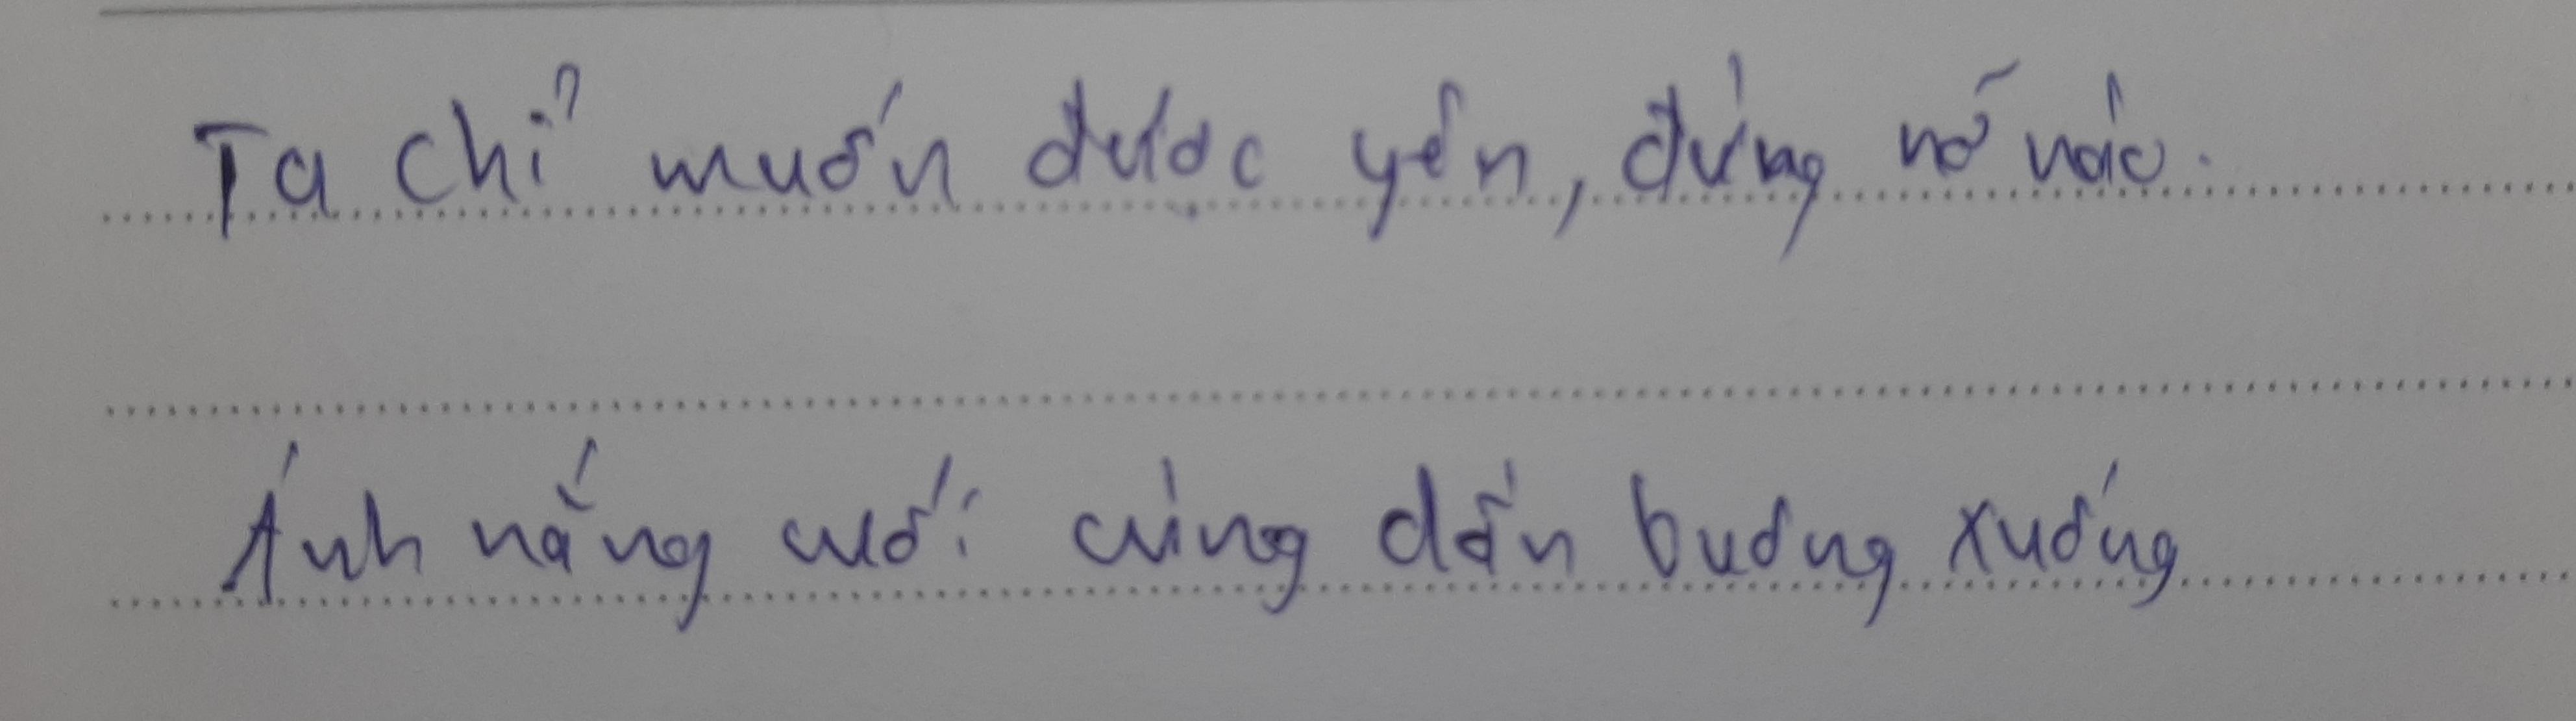 Ta chỉ muốn được yên, đừng nỡ nào.
Ánh nắng cuối cùng dần buông xuống